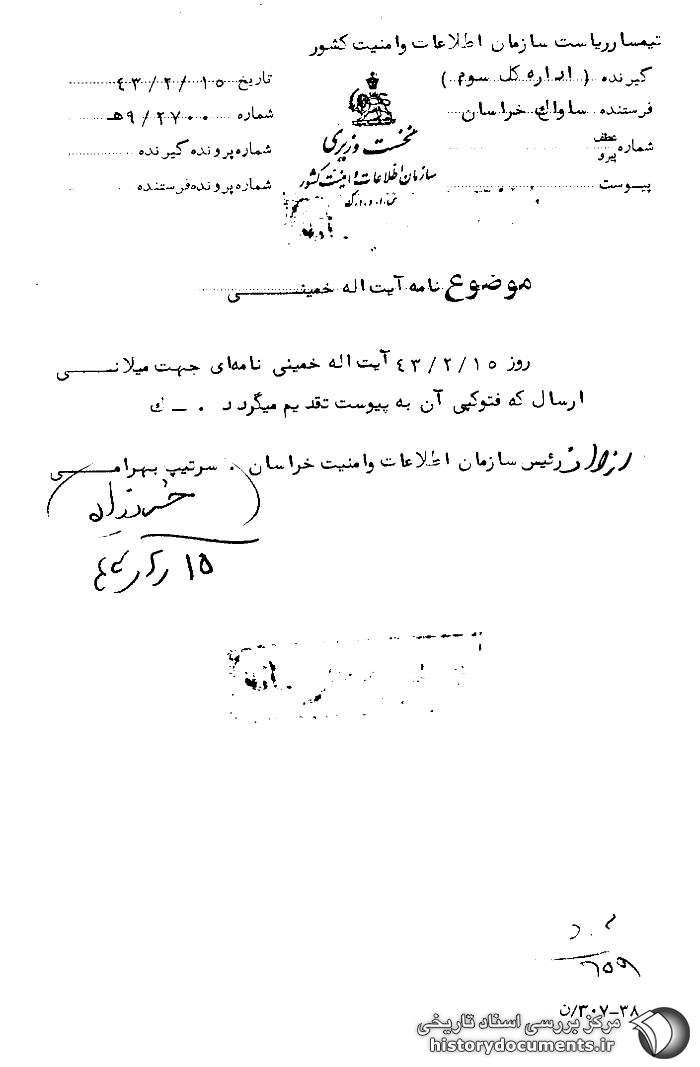 تیمسار ریاست سازمان اطلاعات و امنیت کشور
گیرنده ( اداره کل سوم )
فرستنده ساواک خراسان
شماره عطف پیرو
پیوست
نخست وزیری
سازمان اطلاعات و امنیت کشور
تاریخ ۴۳/۲/۱۵
شماره ۹/۲۷۰۰هـ
شماره پرونده گیرنده
شماره پرونده فرستنده
موضوع نامه آیت اله خمینی
روز ۴۳/۲/۱۵ آیت اله خمینی نامه‌ای جهت میلانی
ارسال که فتوکپی آن به پیوست تقدیم میگردد . ـ ک
رئیس سازمان اطلاعات و امنیت خراسان . سرتیپ بهرامی
۳۰۷-۳۸/ن
مرکز بررسی اسناد تاریخی
historydocuments.ir